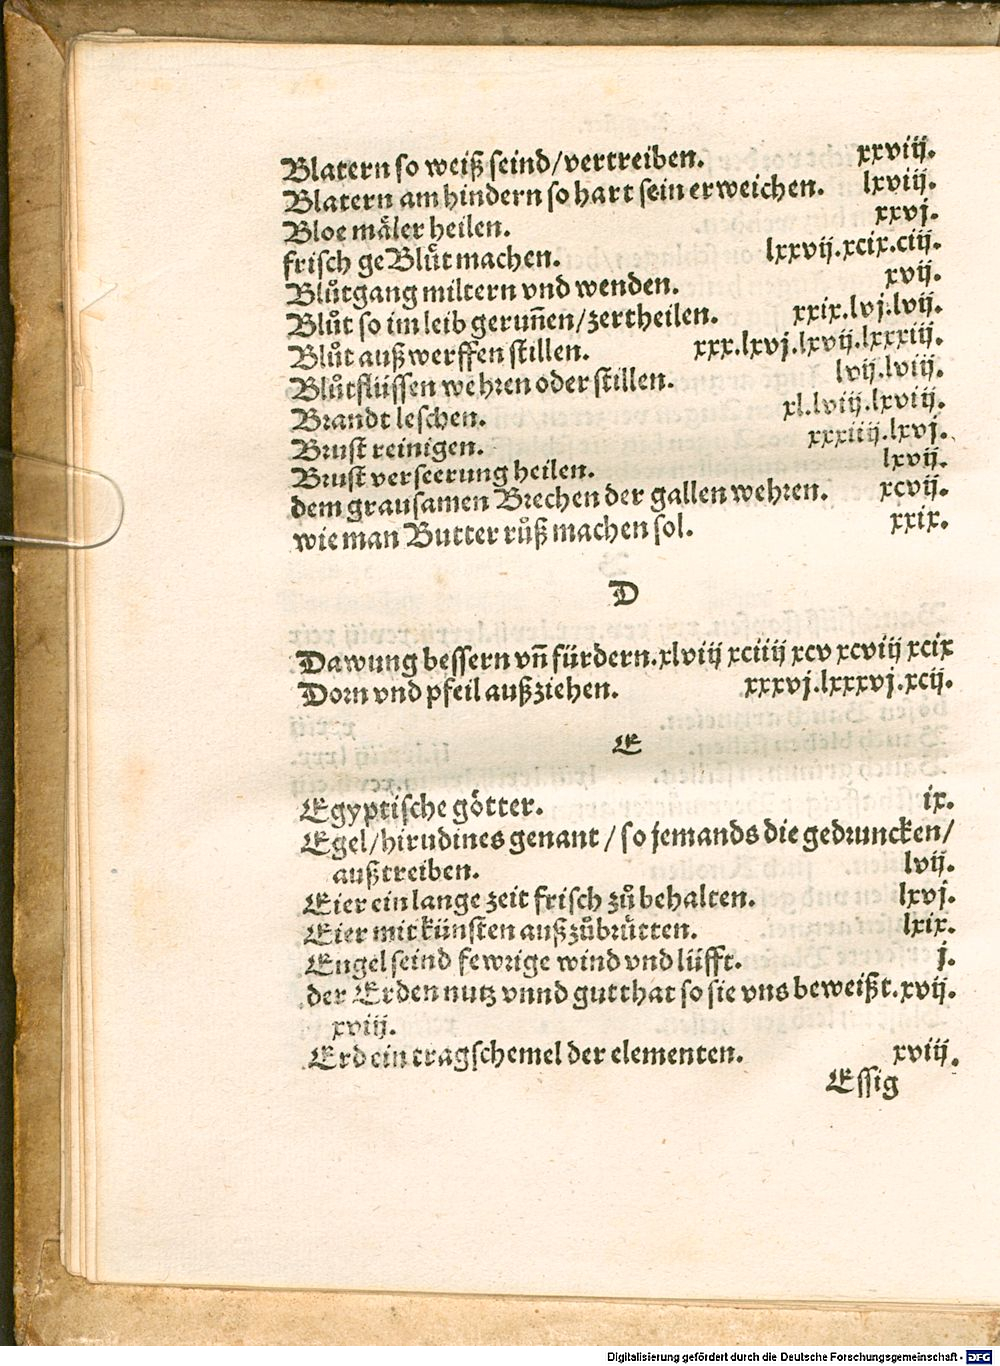 Blatern so weiß seind/vertreiben. xxviij.
Blatern am hindern so hart sein erweichen. lxviij.
Bloe mäler heilen. xxvj.
frisch ge Blůt machen. lxxvij.xcix.ciij.
Blůtgang miltern vnd wenden. xvij.
Blůt so im leib geruñen/zertheilen. xxix.lvj.lvij.
Blůt auß werffen stillen. xxx.lxvj.lxvij.lxxxiij.
Blůtflüssen wehren oder stillen. lvij.lviij.
Brandt leschen. xl.lviij.lxviij.
Brust reinigen. xxxiiij.lxvj.
Brust verseerung heilen. lxvij.
dem grausamen Brechen der gallen wehren. xcvij.
wie man Butter růß machen sol. xxix.
D
Dawung bessern vñ fürdern.xlviij xciiij xcv xcviij xcix
Dorn vnd pfeil außziehen. xxxvj.lxxxvj.xcij.
E
Egyptische götter. ix.
Egel/hirudines genant / so jemands die gedruncken/
außtreiben. lvij.
Eier ein lange zeit frisch zů behalten. lxvj.
Eier mit künsten außzůbrütten. lxix.
Engel seind fewrige wind vnd lüfft. j.
der Erden nutz vnnd gutthat so sie vns beweißt.xvij.
xviij.
Erd ein tragschemel der elementen. xviij.
Essig
Digitalisierung gefördert durch die Deutsche Forschungsgemeinschaft - DFG